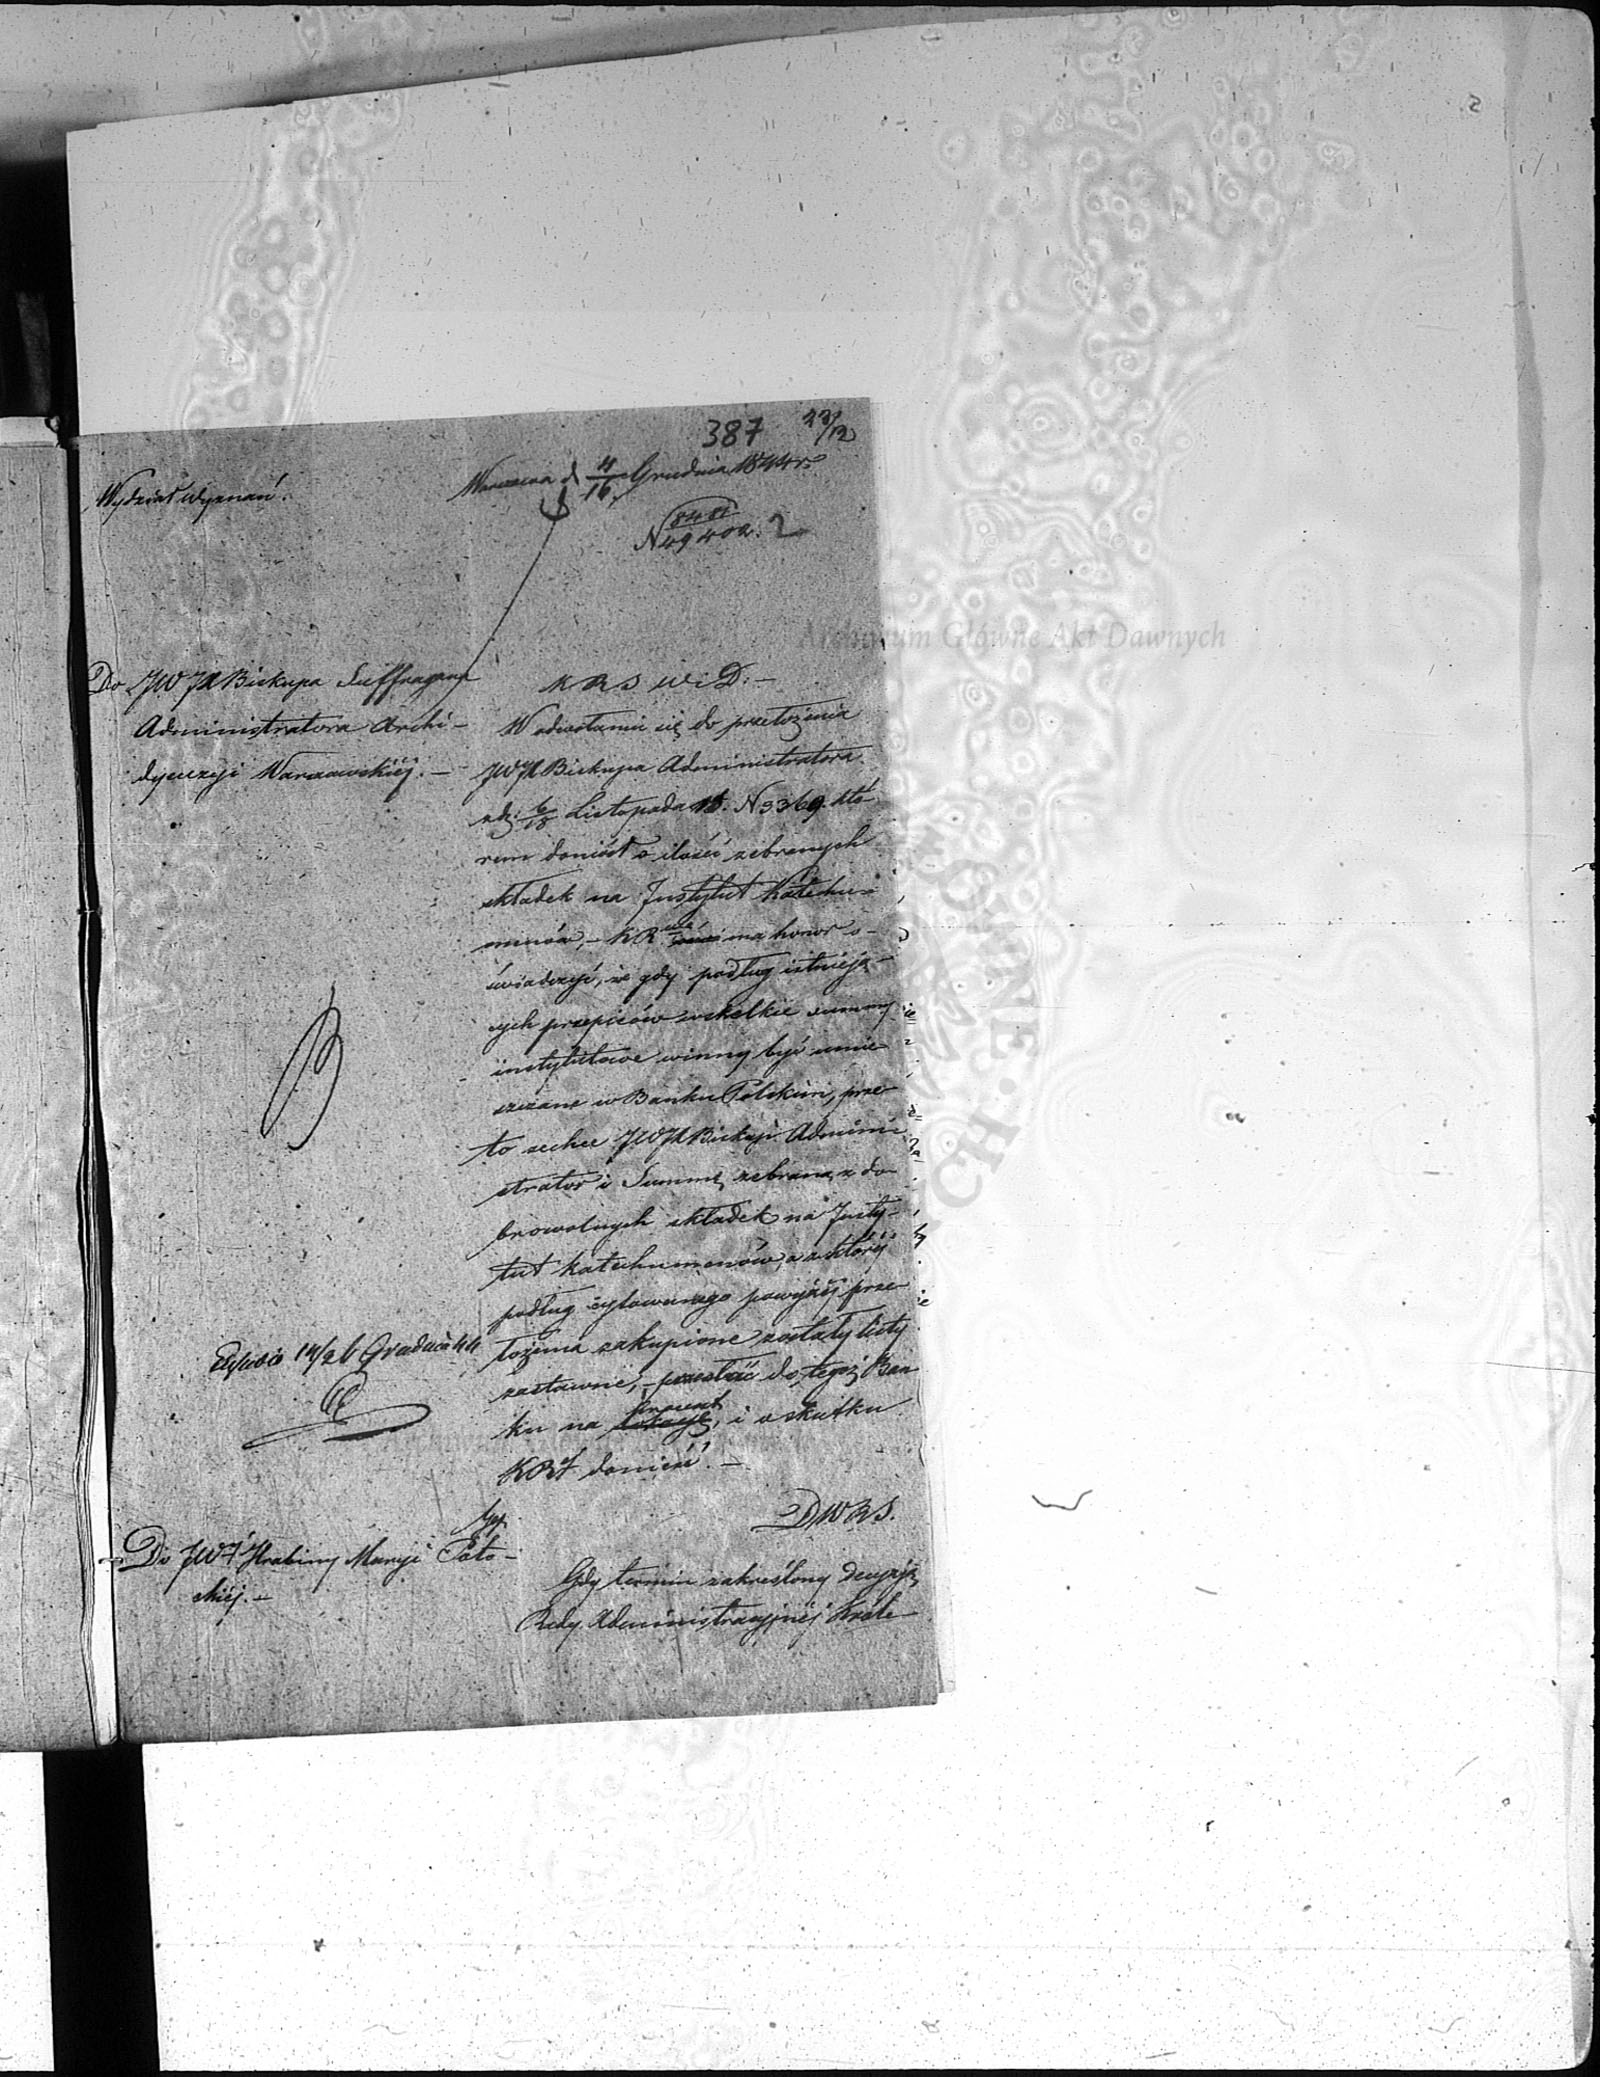 387
23/12
Wydział Wyznań.
Warszawa d 4/16 Grudnia 1844 r.
N 8481/49402.
Do JWJX Biskupa Suffragana
Administratora Archi-
dyecezyi Warszawskiéj. —
KRSWiD. —
W odwołaniu się do przełożenia
JWJX Biskupa Administratora
z d. 6/18 Listopada N 3369. któ-
rem doniósł o ilości zebranych
składek na Instytut Katechu-
menów, — KR ma honor o-
świadczyć, że gdy podług istnieją-
cych przepisów wszelkie summy
instytutowe winny być umie-
szczane w Banku Polskim, prze-
to zechce JWJX Biskup Admini-
strator i Summę zebraną z do-
browolnych składek na Insty-
tut Katechumenów, a za któréj
podług cytowanego powyżéj prze-
łożenia zakupione zostały listy
zastawne, — przesłać do tegoż Ban-
ku na procent, i o skutku
KRJ donieść. —
14/26 Grudnia 44
DWRS.
Do JWJ Hrabiny Maryi Poto-
ckiéj. —
Gdy termin zakreślony decyzją
Rady Administracyjnéj Króle-
Archiwum Główne Akt Dawnych